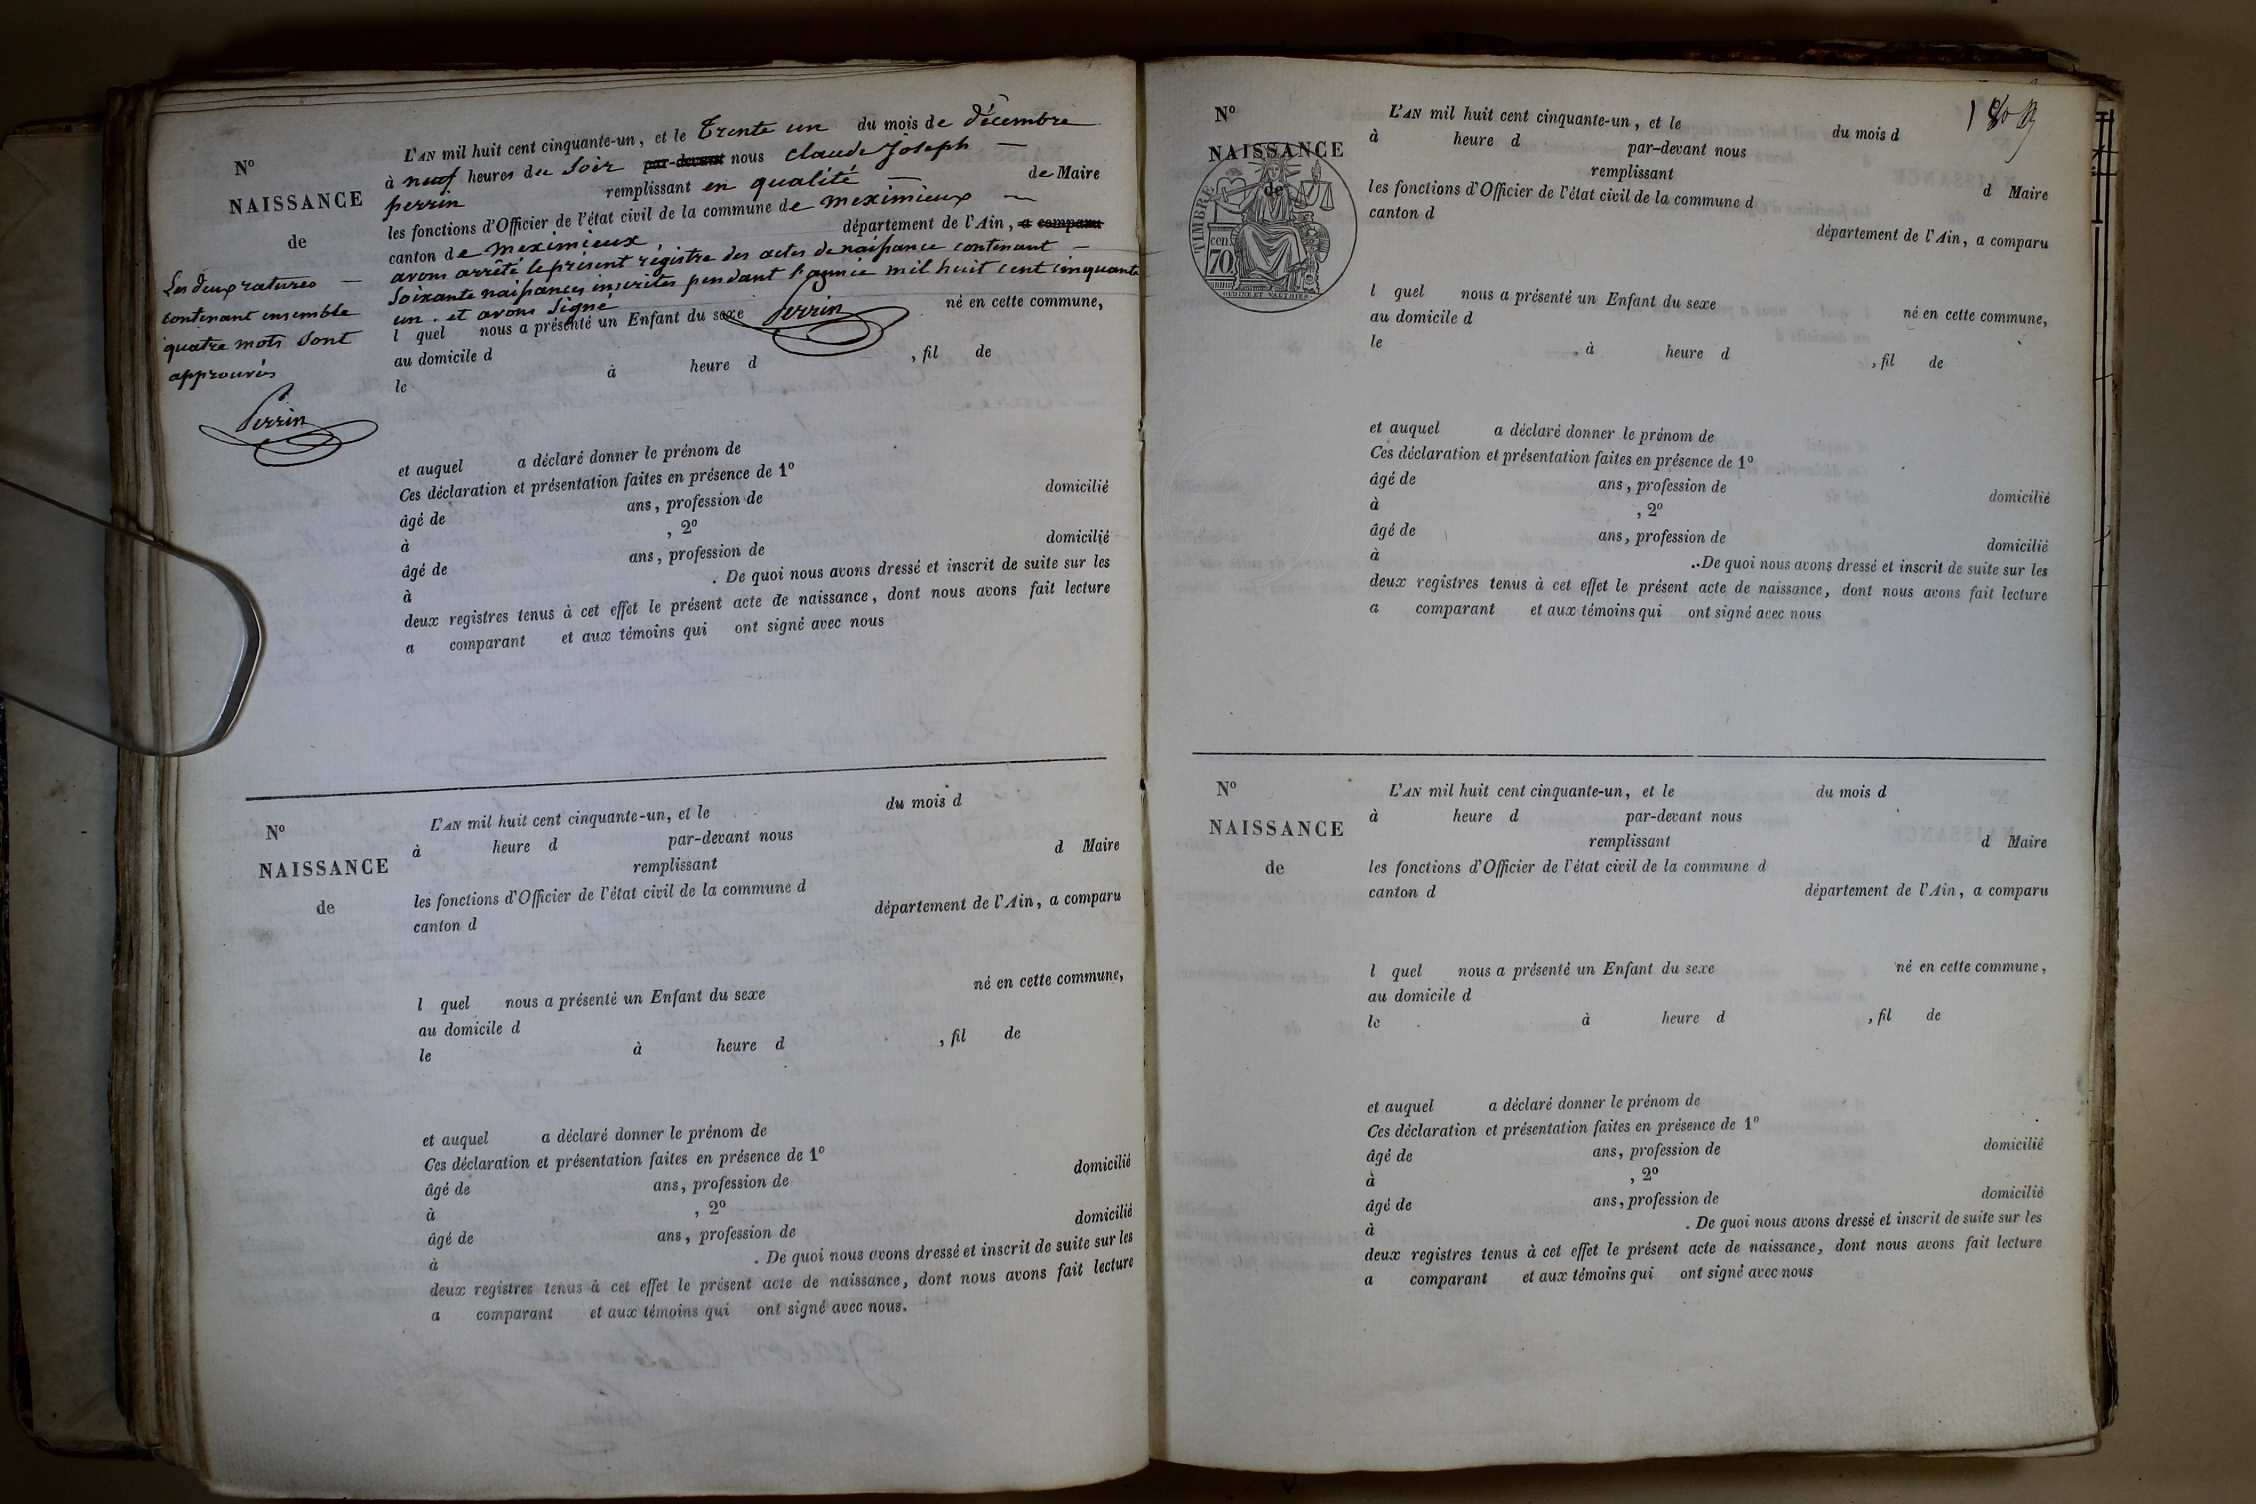 N°
NAISSANCE
de
L'AN mil huit cent cinquante-un, et le Trente un du mois de décembre
à neuf heures du Soir par-devant nous Claude Joseph
perrin remplissant en qualité de Maire
les fonctions d'Officier de l'état civil de la commune de meximieux
canton de meximieux, département de l'Ain, a comparu
avons arrêté le présent régistre des actes de naissance contenant
Soixante naissances inscrites pendant l'année mil huit cent cinquante
un. et avons Signé Perrin
l quel nous a présenté un Enfant du sexe né en cette commune,
au domicile d
le à heure d , fil de
et auquel a déclaré donner le prénom de
Ces déclaration et présentation faites en présence de 1°
âgé de ans, profession de domicilié
à , 2°
âgé de ans, profession de domicilié
à . De quoi nous avons dressé et inscrit de suite sur les
deux registres tenus à cet effet le présent acte de naissance, dont nous avons fait lecture
a comparant et aux témoins qui ont signé avec nous
Les deux ratures
contenant ensemble
quatre mots Sont
approuvés
Perrin
N°
NAISSANCE
de
L'AN mil huit cent cinquante-un, et le du mois d
à heure d par-devant nous
remplissant d Maire
les fonctions d'Officier de l'état civil de la commune d
canton d département de l'Ain, a comparu
l quel nous a présenté un Enfant du sexe né en cette commune,
au domicile d
le à heure d , fil de
et auquel a déclaré donner le prénom de
Ces déclaration et présentation faites en présence de 1°
âgé de ans, profession de domicilié
à , 2°
âgé de ans, profession de domicilié
à . De quoi nous avons dressé et inscrit de suite sur les
deux registres tenus à cet effet le présent acte de naissance, dont nous avons fait lecture
a comparant et aux témoins qui ont signé avec nous.
N°
NAISSANCE
de
TIMBRE
cen.
70.
L'AN mil huit cent cinquante-un, et le du mois d
à heure d par-devant nous
remplissant d Maire
les fonctions d'Officier de l'état civil de la commune d
canton d département de l'Ain, a comparu
l quel nous a présenté un Enfant du sexe né en cette commune,
au domicile d
le à heure d , fil de
et auquel a déclaré donner le prénom de
Ces déclaration et présentation faites en présence de 1°
âgé de ans, profession de domicilié
à , 2°
âgé de ans, profession de domicilié
à . De quoi nous avons dressé et inscrit de suite sur les
deux registres tenus à cet effet le présent acte de naissance, dont nous avons fait lecture
a comparant et aux témoins qui ont signé avec nous
N°
NAISSANCE
de
L'AN mil huit cent cinquante-un, et le du mois d
à heure d par-devant nous
remplissant d Maire
les fonctions d'Officier de l'état civil de la commune d
canton d département de l'Ain, a comparu
l quel nous a présenté un Enfant du sexe né en cette commune,
au domicile d
le à heure d , fil de
et auquel a déclaré donner le prénom de
Ces déclaration et présentation faites en présence de 1°
âgé de ans, profession de domicilié
à , 2°
âgé de ans, profession de domicilié
à . De quoi nous avons dressé et inscrit de suite sur les
deux registres tenus à cet effet le présent acte de naissance, dont nous avons fait lecture
a comparant et aux témoins qui ont signé avec nous